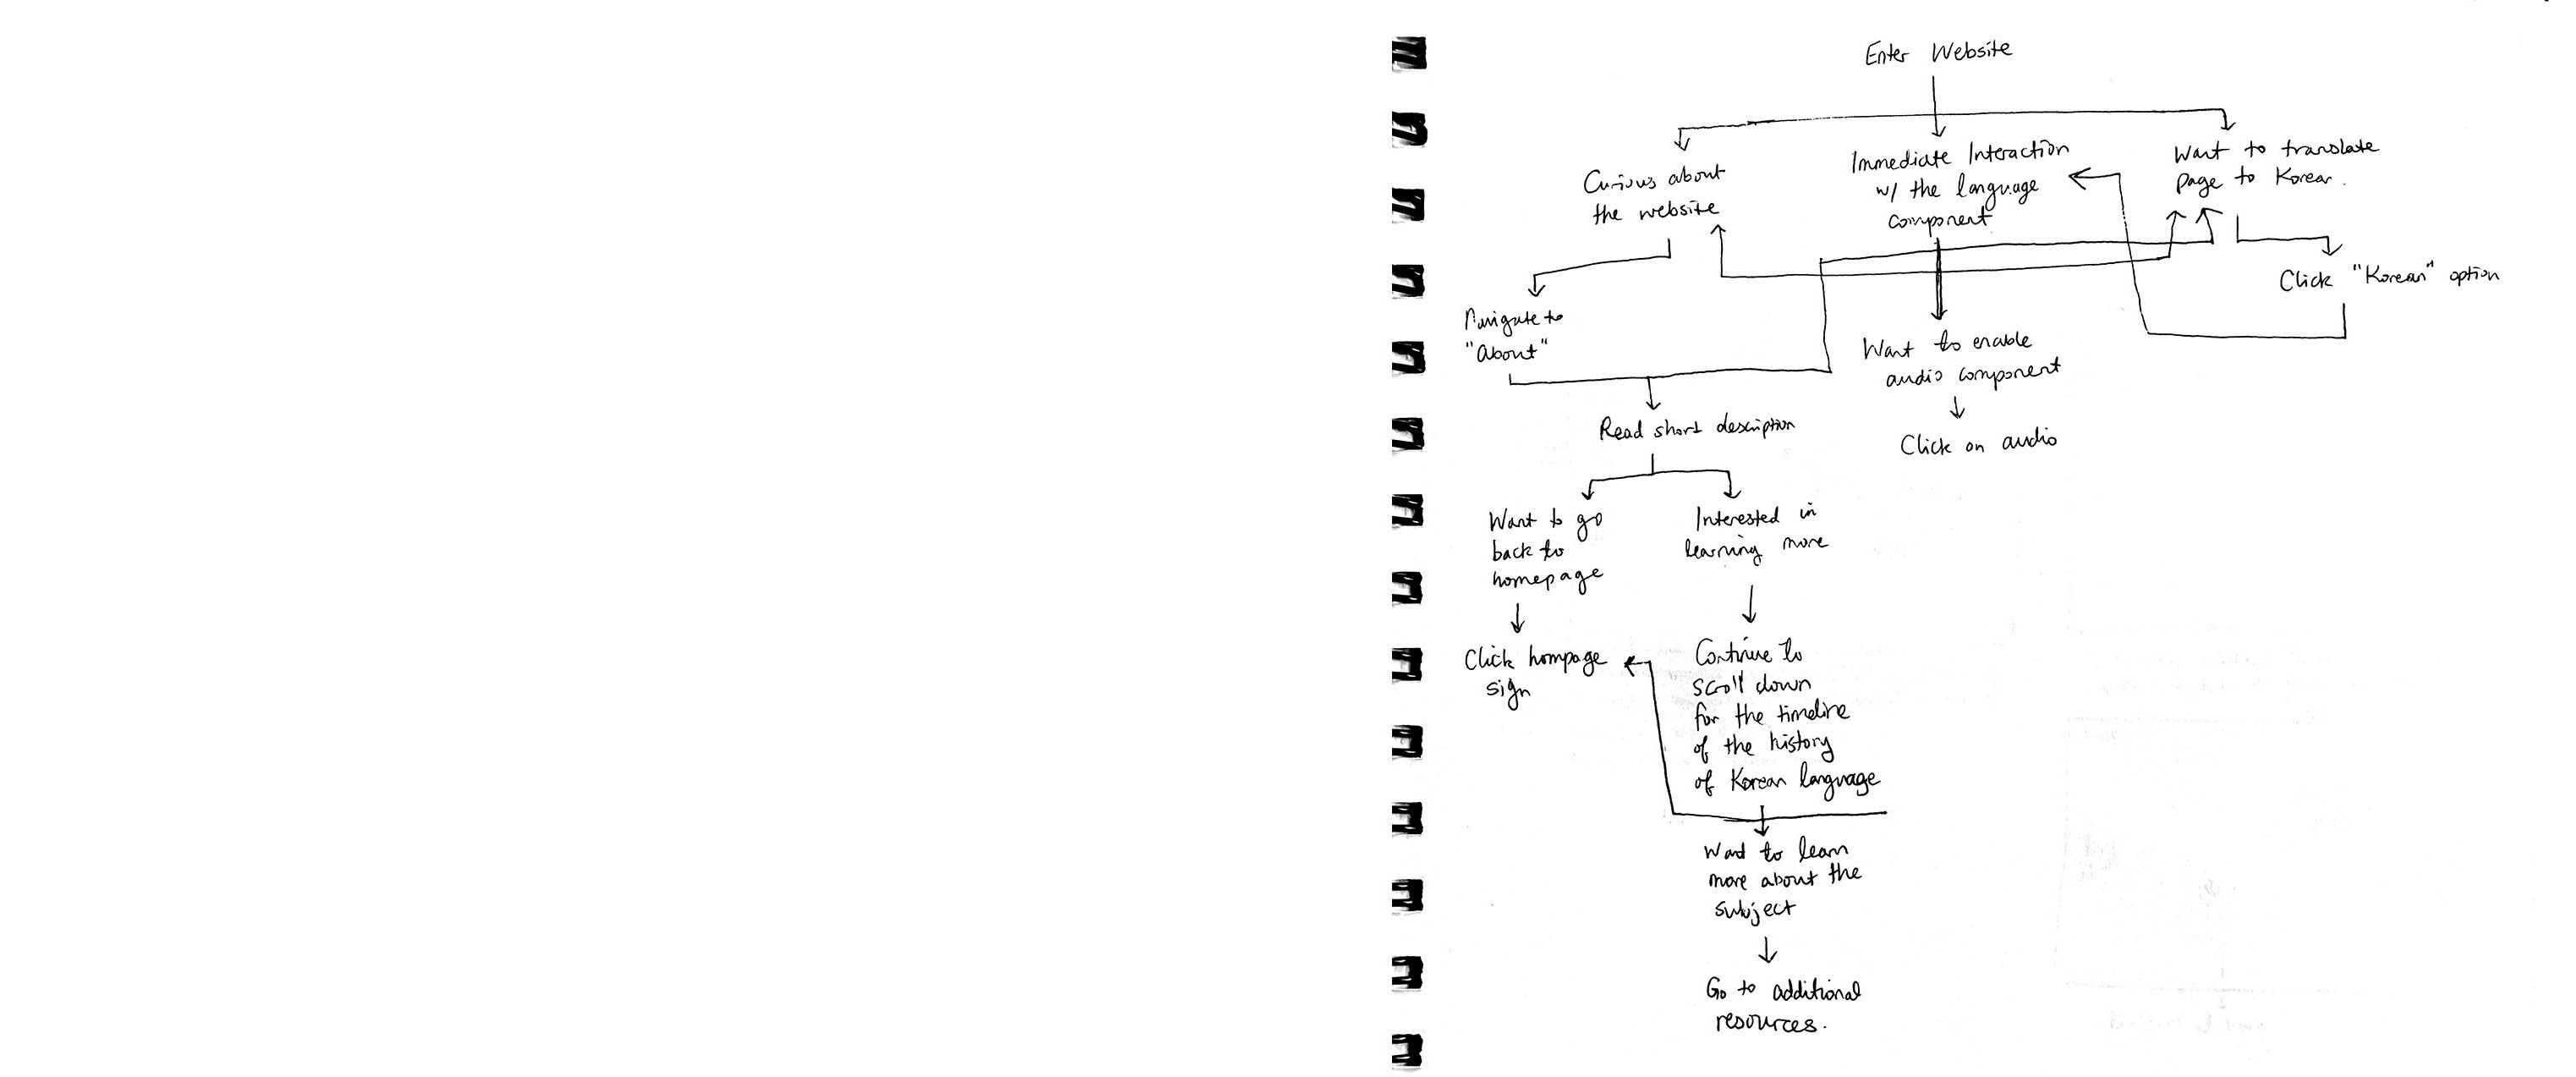 Enter Website
Curious about
the website
Immediate Interaction
w/ the language
component
Want to translate
page to Korean.
Click "Korean" option
Navigate to
"About"
Want to enable
audio component
Click on audio
Read short description
Want to go
back to
homepage
Interested in
learning more
Click hompage
sign
Continue to
scroll down
for the timeline
of the history
of Korean language
Want to learn
more about the
subject
Go to additional
resources.